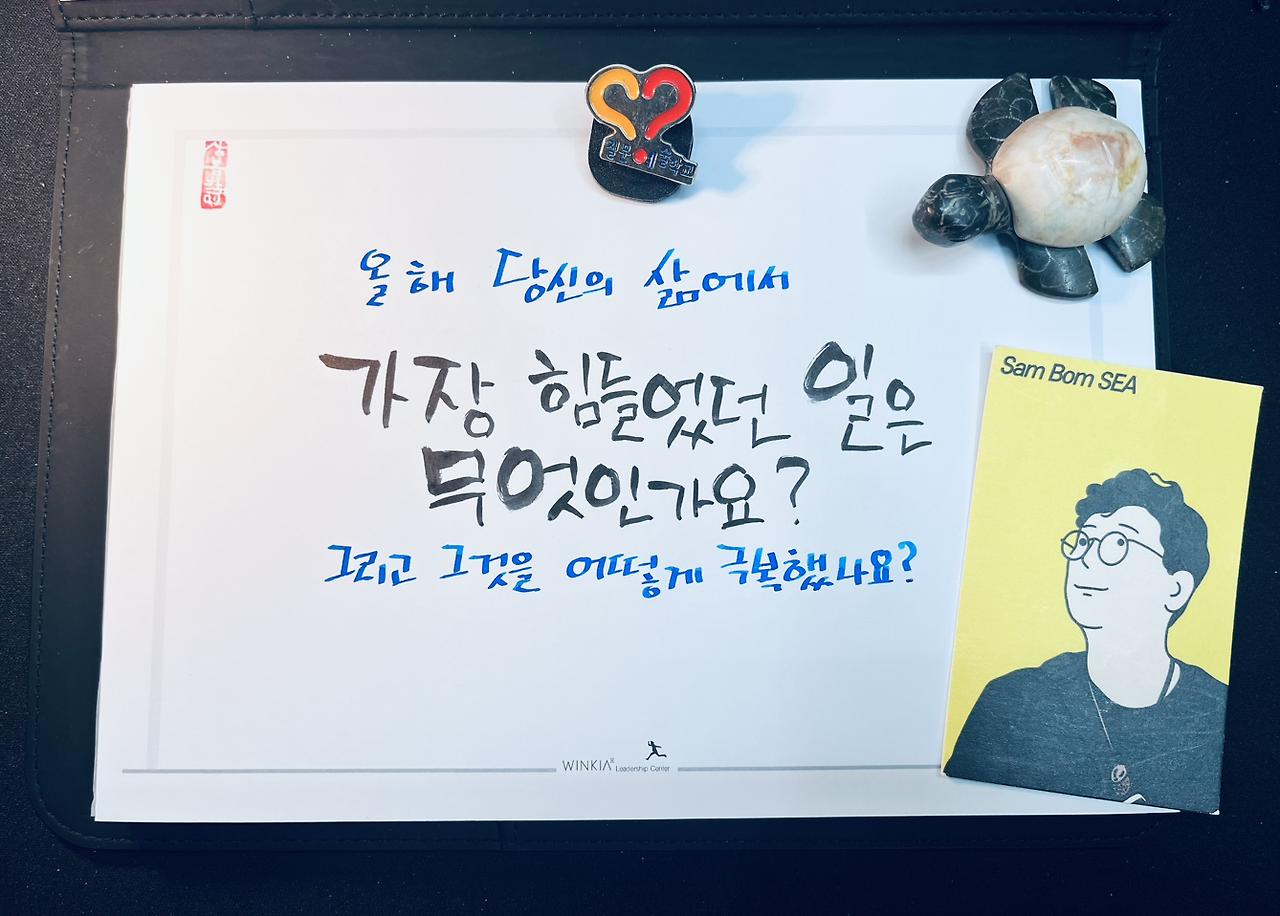 올해 당신의 삶에서
가장 힘들었던 일은
무엇인가요?
그리고 그것을 어떻게 극복했나요?
Sam Bom SEA
WINKIA
Leadership Center